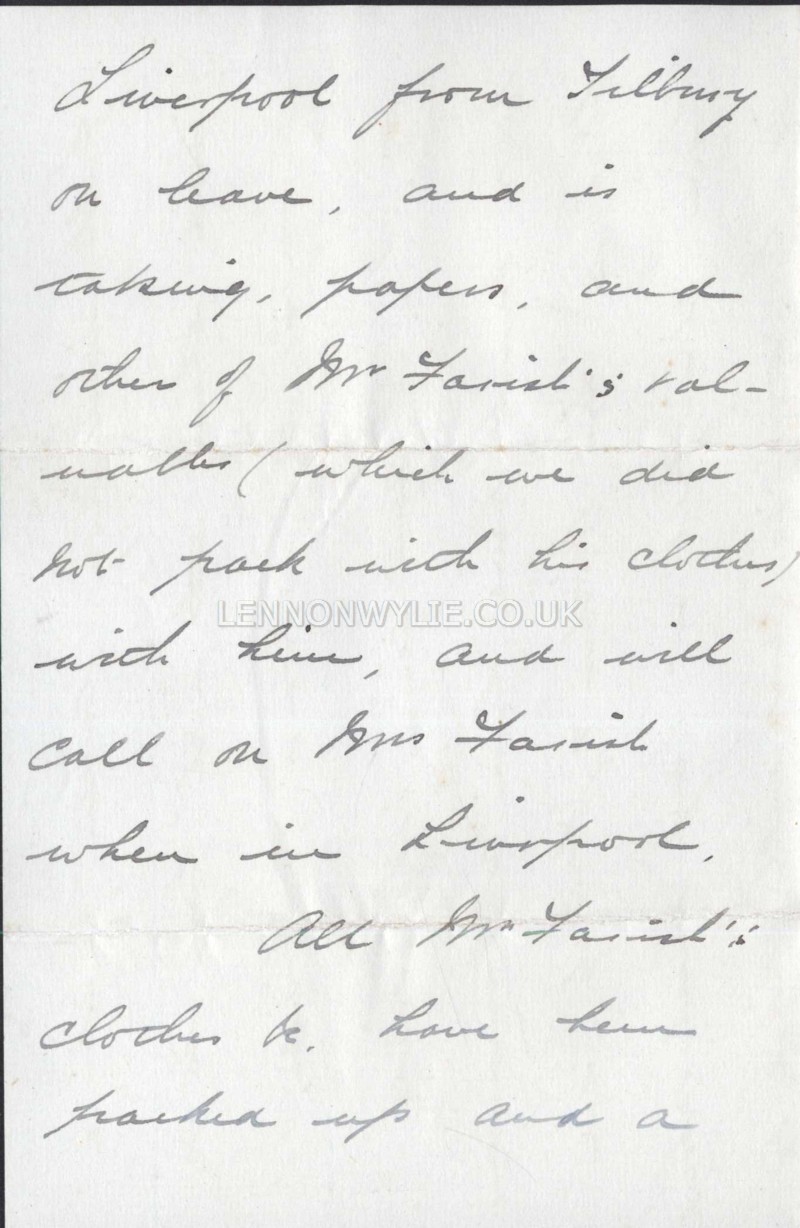 Liverpool from Tilbury
on leave, and is
taking, papers, and
other of Mr Farish's val-
uables (which we did
not pack with his clothes)
LENNONWYLIE.CO.UK
with him, and will
call on Mrs Farish
when in Liverpool.
All Mr Farish's
clothes &c. have been
packed up and a